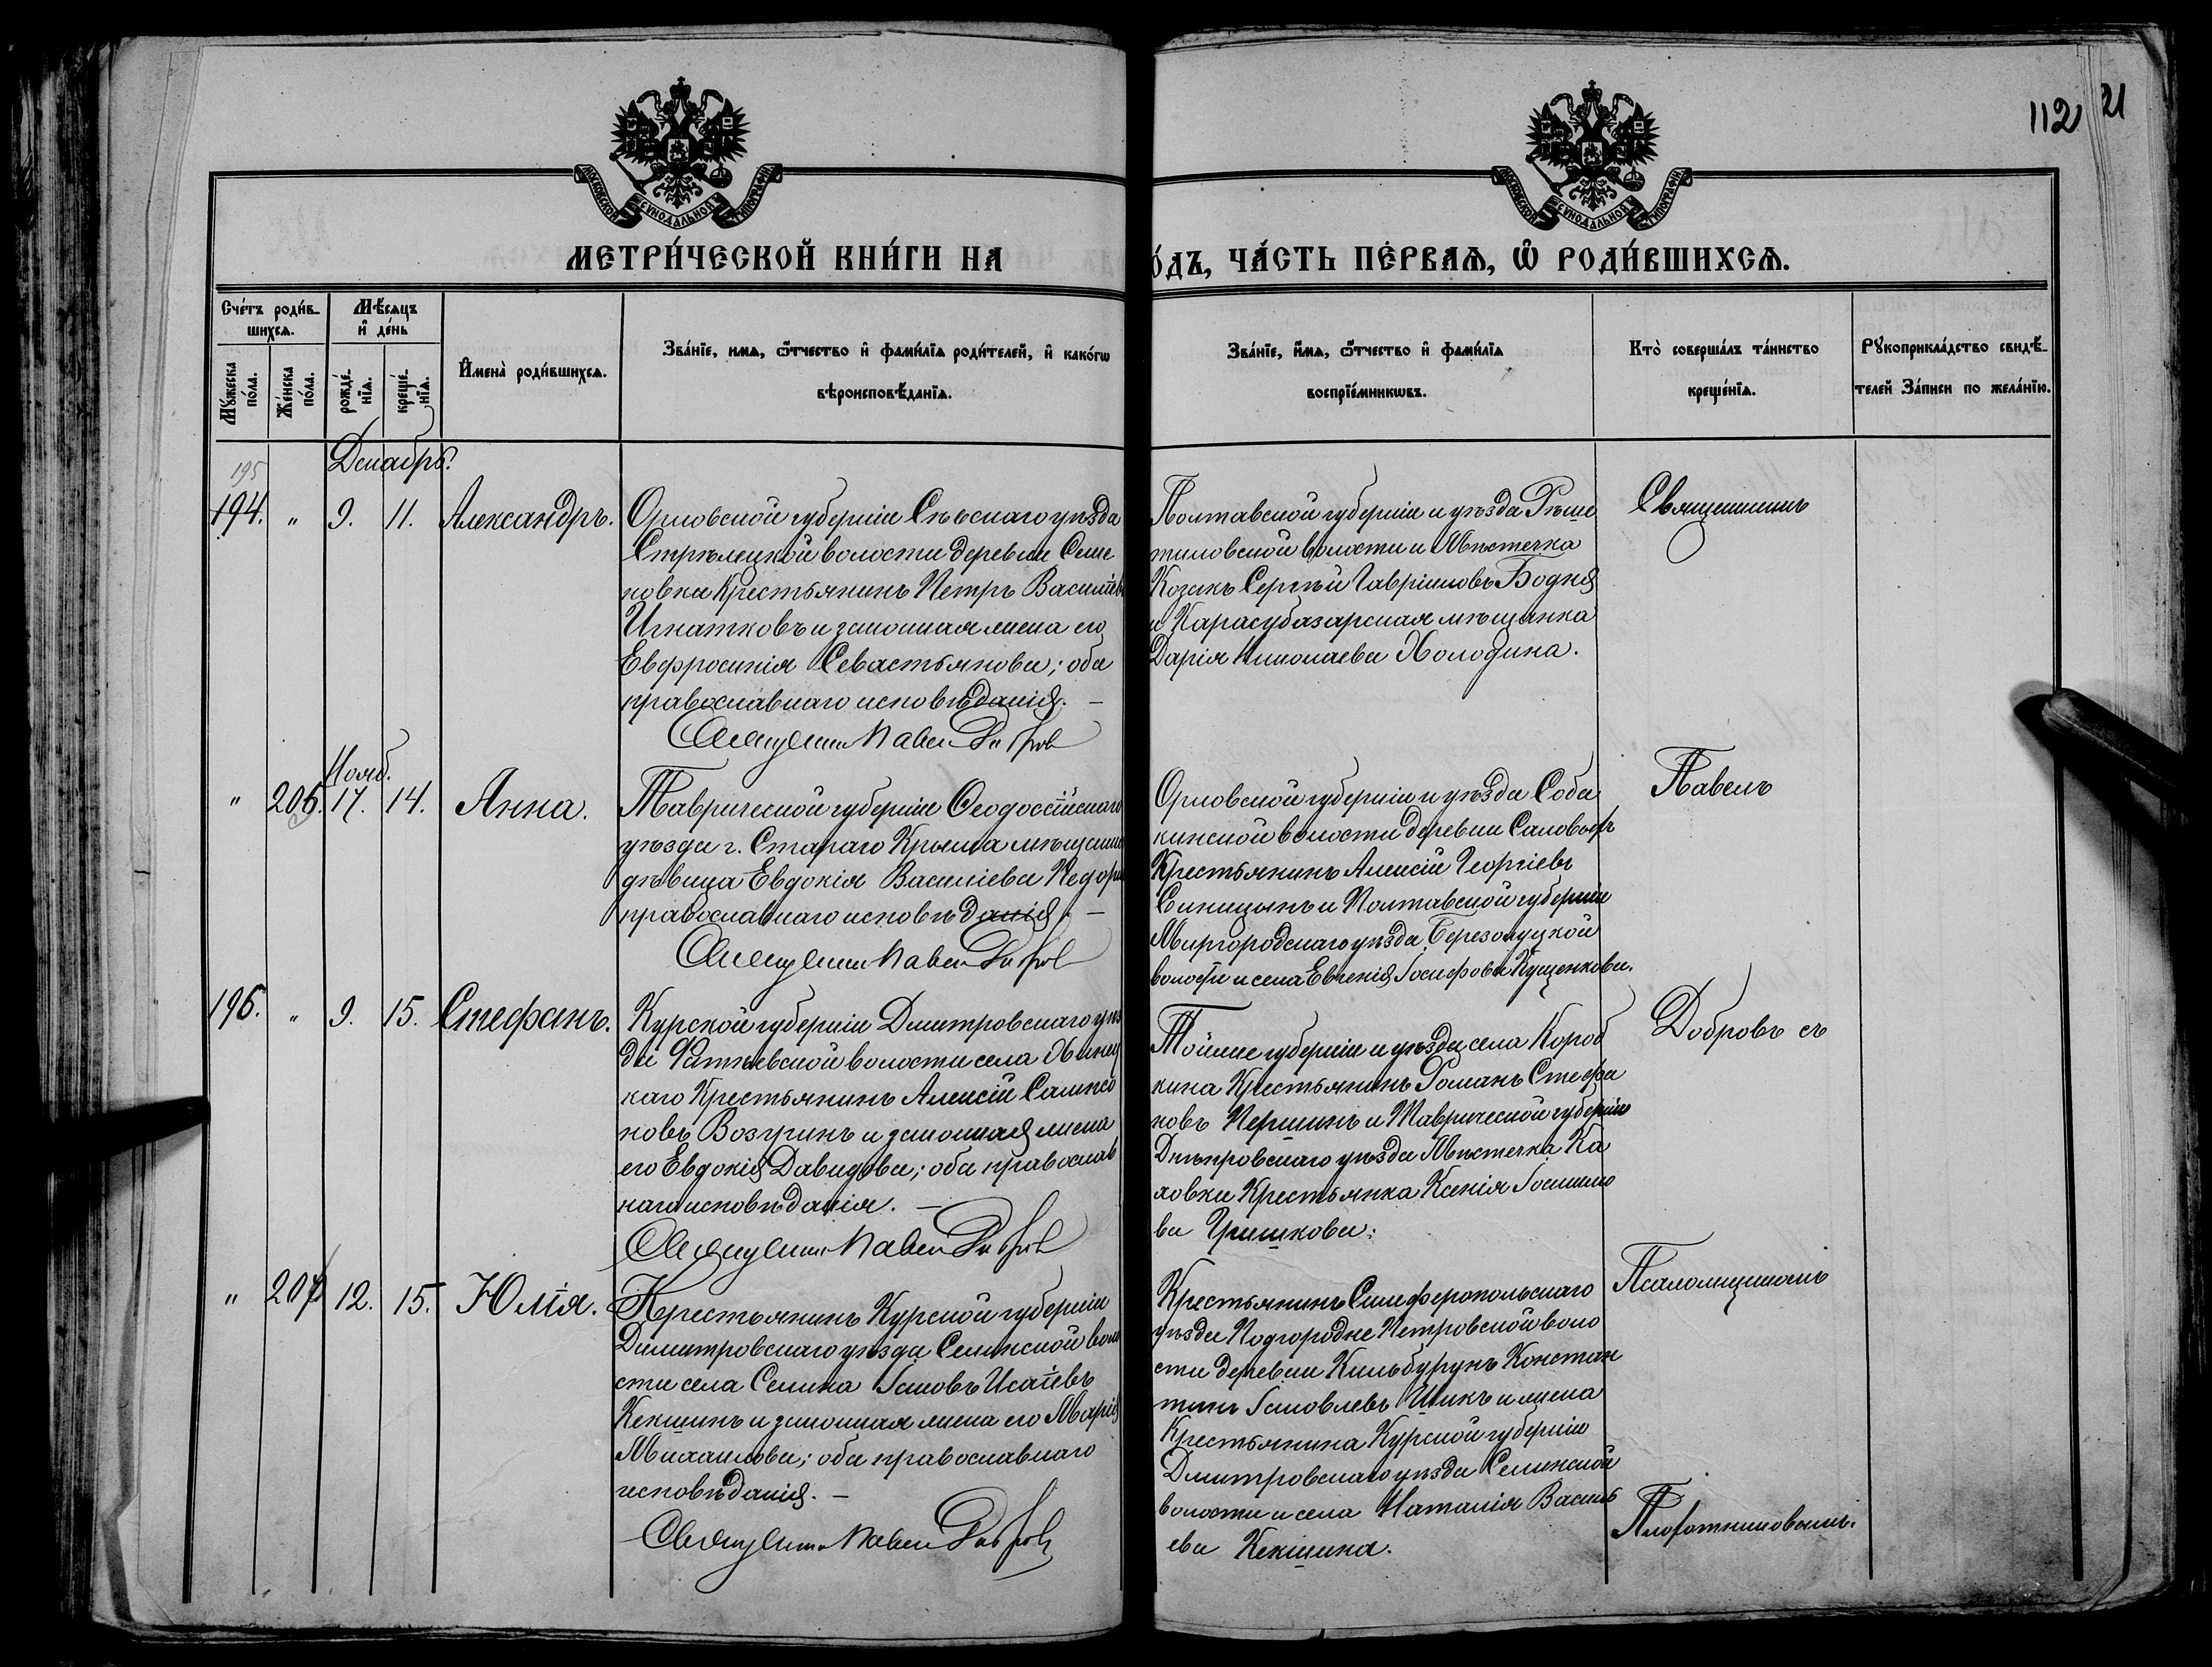 112 21
МОСКОВСКОЙ СѴНОДАЛЬНОЙ ТИПОГРАФІИ
МОСКОВСКОЙ СѴНОДАЛЬНОЙ ТИПОГРАФІИ
МЕТРИ́ЧЕСКОЙ КНИ́ГИ НА
О́ДЪ, ЧА́СТЬ ПЕ́РВАѦ, Ѡ РОДИ́ВШИХСѦ.
Сче́тъ роди́в-
шихсѧ.
Мѣ́сѧцъ
и҆ де́нь
Мꙋ́жеска
по́ла.
Же́нска
по́ла.
рожде́-
нїѧ.
креще́-
нїѧ.
И҆мена̀ роди́вшихсѧ.
Зва́нїе, имѧ, ѻ҆́тчество и҆ фами́лїѧ роди́телей, и҆ како́гѡ
вѣроисповѣ́данїѧ.
Зва́нїе, и҆́мѧ, ѻ҆́тчество и҆ фами́лїѧ
воспрїе́мникѡвъ.
Кто̀ соверша́лъ та́инство
креще́нїѧ.
Рꙋкоприкла́дство свидѣ́-
телей За́писи по жела́нїю.
Декабрь.
195
194. " 9. 11. Александръ.
Орловской губерніи Сѣвскаго уѣзда
Стрѣлецкой волости деревни Семе
новки Крестьянинъ Петръ Василіевъ
Игнатковъ и законная жена его
Евфросинія Севастьянова; оба
православнаго исповѣданія. —
Священникъ Павелъ Добровъ
Полтавской губерніи и уѣзда Рѣше
тиловской волости и Мѣстечка
Козакъ Сергѣй Гавріиловъ Бодня
и Карасубазарская мѣщанка
Дарія Николаева Холодина.
Священникъ
Нояб.
" 206. 17. 14. Анна.
Таврической губерніи Ѳеодосійскаго
уѣзда г. Стараго Крыма мѣщанка
дѣвица Евдокія Василіева
православнаго исповѣданія. —
Священникъ Павелъ Добровъ
Орловской губерніи и уѣзда Соба
кинской волости деревни
Крестьянинъ Алексій Георгіевъ
Синицынъ и Полтавской губерніи
Миргородскаго уѣзда Березолуцкой
волости и села Евгенія Іосифова Куценкова.
Павелъ
196. " 9. 15. Стефанъ.
Курской губерніи Дмитровскаго уѣз
да волости села
каго Крестьянинъ Алексій Сампсо
новъ Возгринъ и законная жена
его Евдокія Давидова; оба православ
наго исповѣданія. —
Священникъ Павелъ Добровъ
Той же губерніи и уѣзда села Короб
кина Крестьянинъ Романъ Стефа
новъ Першинъ и Таврической губерніи
Днѣпровскаго уѣзда Мѣстечка Ка
ховки Крестьянка Ксенія
ва Гришкова.
Добровъ съ
" 207 12. 15. Юлія.
Крестьянинъ Курской губерніи
Димитровскаго уѣзда Селинской воло
сти села Селина Іаковъ Исаіевъ
Кекшинъ и законная жена его Марія
Михаилова; оба православнаго
исповѣданія. —
Священникъ Павелъ Добровъ
Крестьянинъ Симферопольскаго
уѣзда Подгородне Петровской воло
сти деревни Кильбурунъ Констан
тинъ Іаковлевъ и жена
Крестьянина Курской губерніи
Дмитровскаго уѣзда Селинской
волости и села Наталія Василь
ева Кекшина.
Псаломщикомъ
Плотниковымъ.